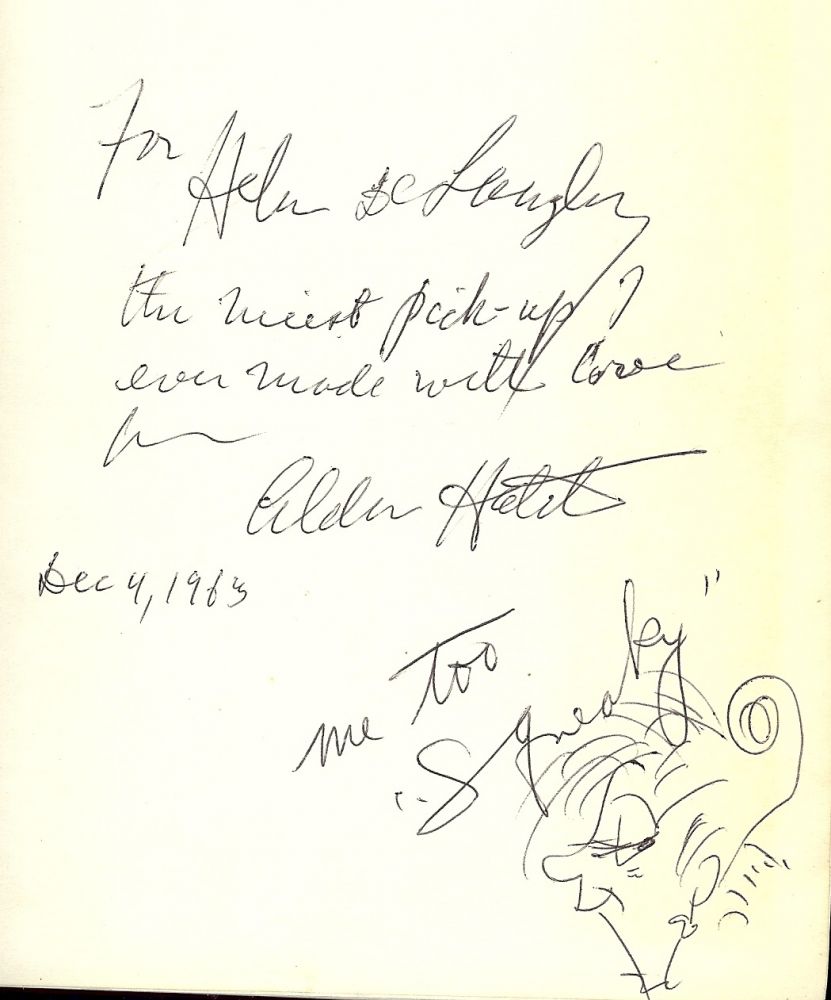 For
Helen De Langley
the nicest pick-up I
ever made with love
from
Alden Hatch
Dec 4, 1963
me too
"Squeaky"